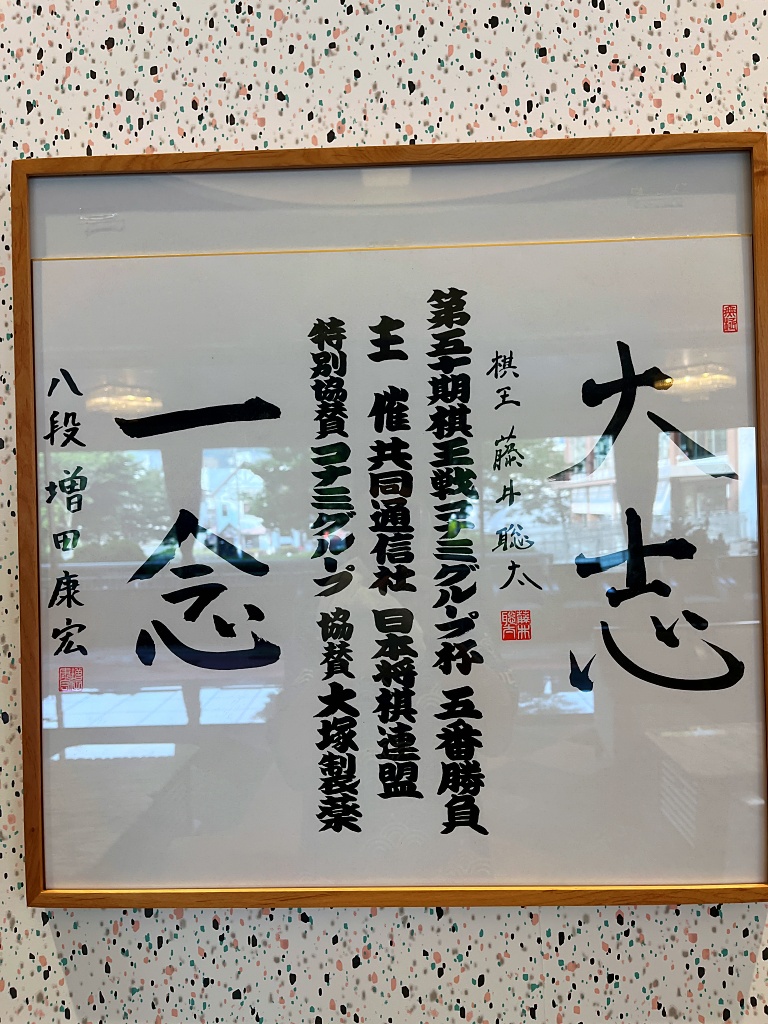 大志
棋王 藤井聡太
第五十期棋王戦コナミグループ杯 五番勝負
主 催 共同通信社 日本将棋連盟
特別協賛 コナミグループ 協賛 大塚製薬
一念
八段 増田康宏